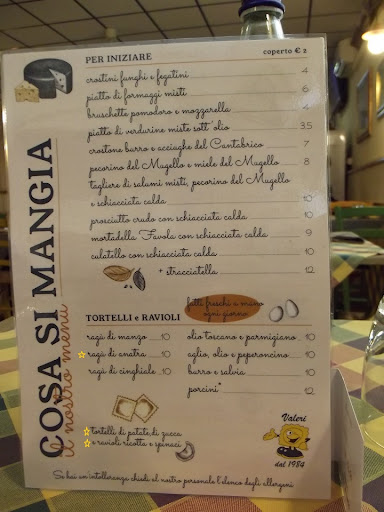 COSA SI MANGIA
il nostro menù
PER INIZIARE coperto € 2
crostini funghi e fegatini 4
piatto di formaggi misti 6
bruschette pomodoro e mozzarella 4
piatto di verdurine miste sott'olio 3.5
crostone burro e acciaghe del Cantabrico 7
pecorino del Mugello e miele del Mugello 8
tagliere di salumi misti, pecorino del Mugello
e schiacciata calda 10
prosciutto crudo con schiacciata calda 10
mortadella Favola con schiacciata calda 9
culatello con schiacciata calda 10
+ stracciatella 12
TORTELLI e RAVIOLI
fatti freschi a mano
ogni giorno
ragù di manzo 10
ragù di anatra 10
ragù di cinghiale 10
olio toscano e parmigiano 10
aglio, olio e peperoncino 10
burro e salvia 10
porcini* 12
tortelli di patate, di zucca
e ravioli ricotta e spinaci
Valeri
dal 1984
Se hai un'intolleranza chiedi al nostro personale l'elenco degli allergeni